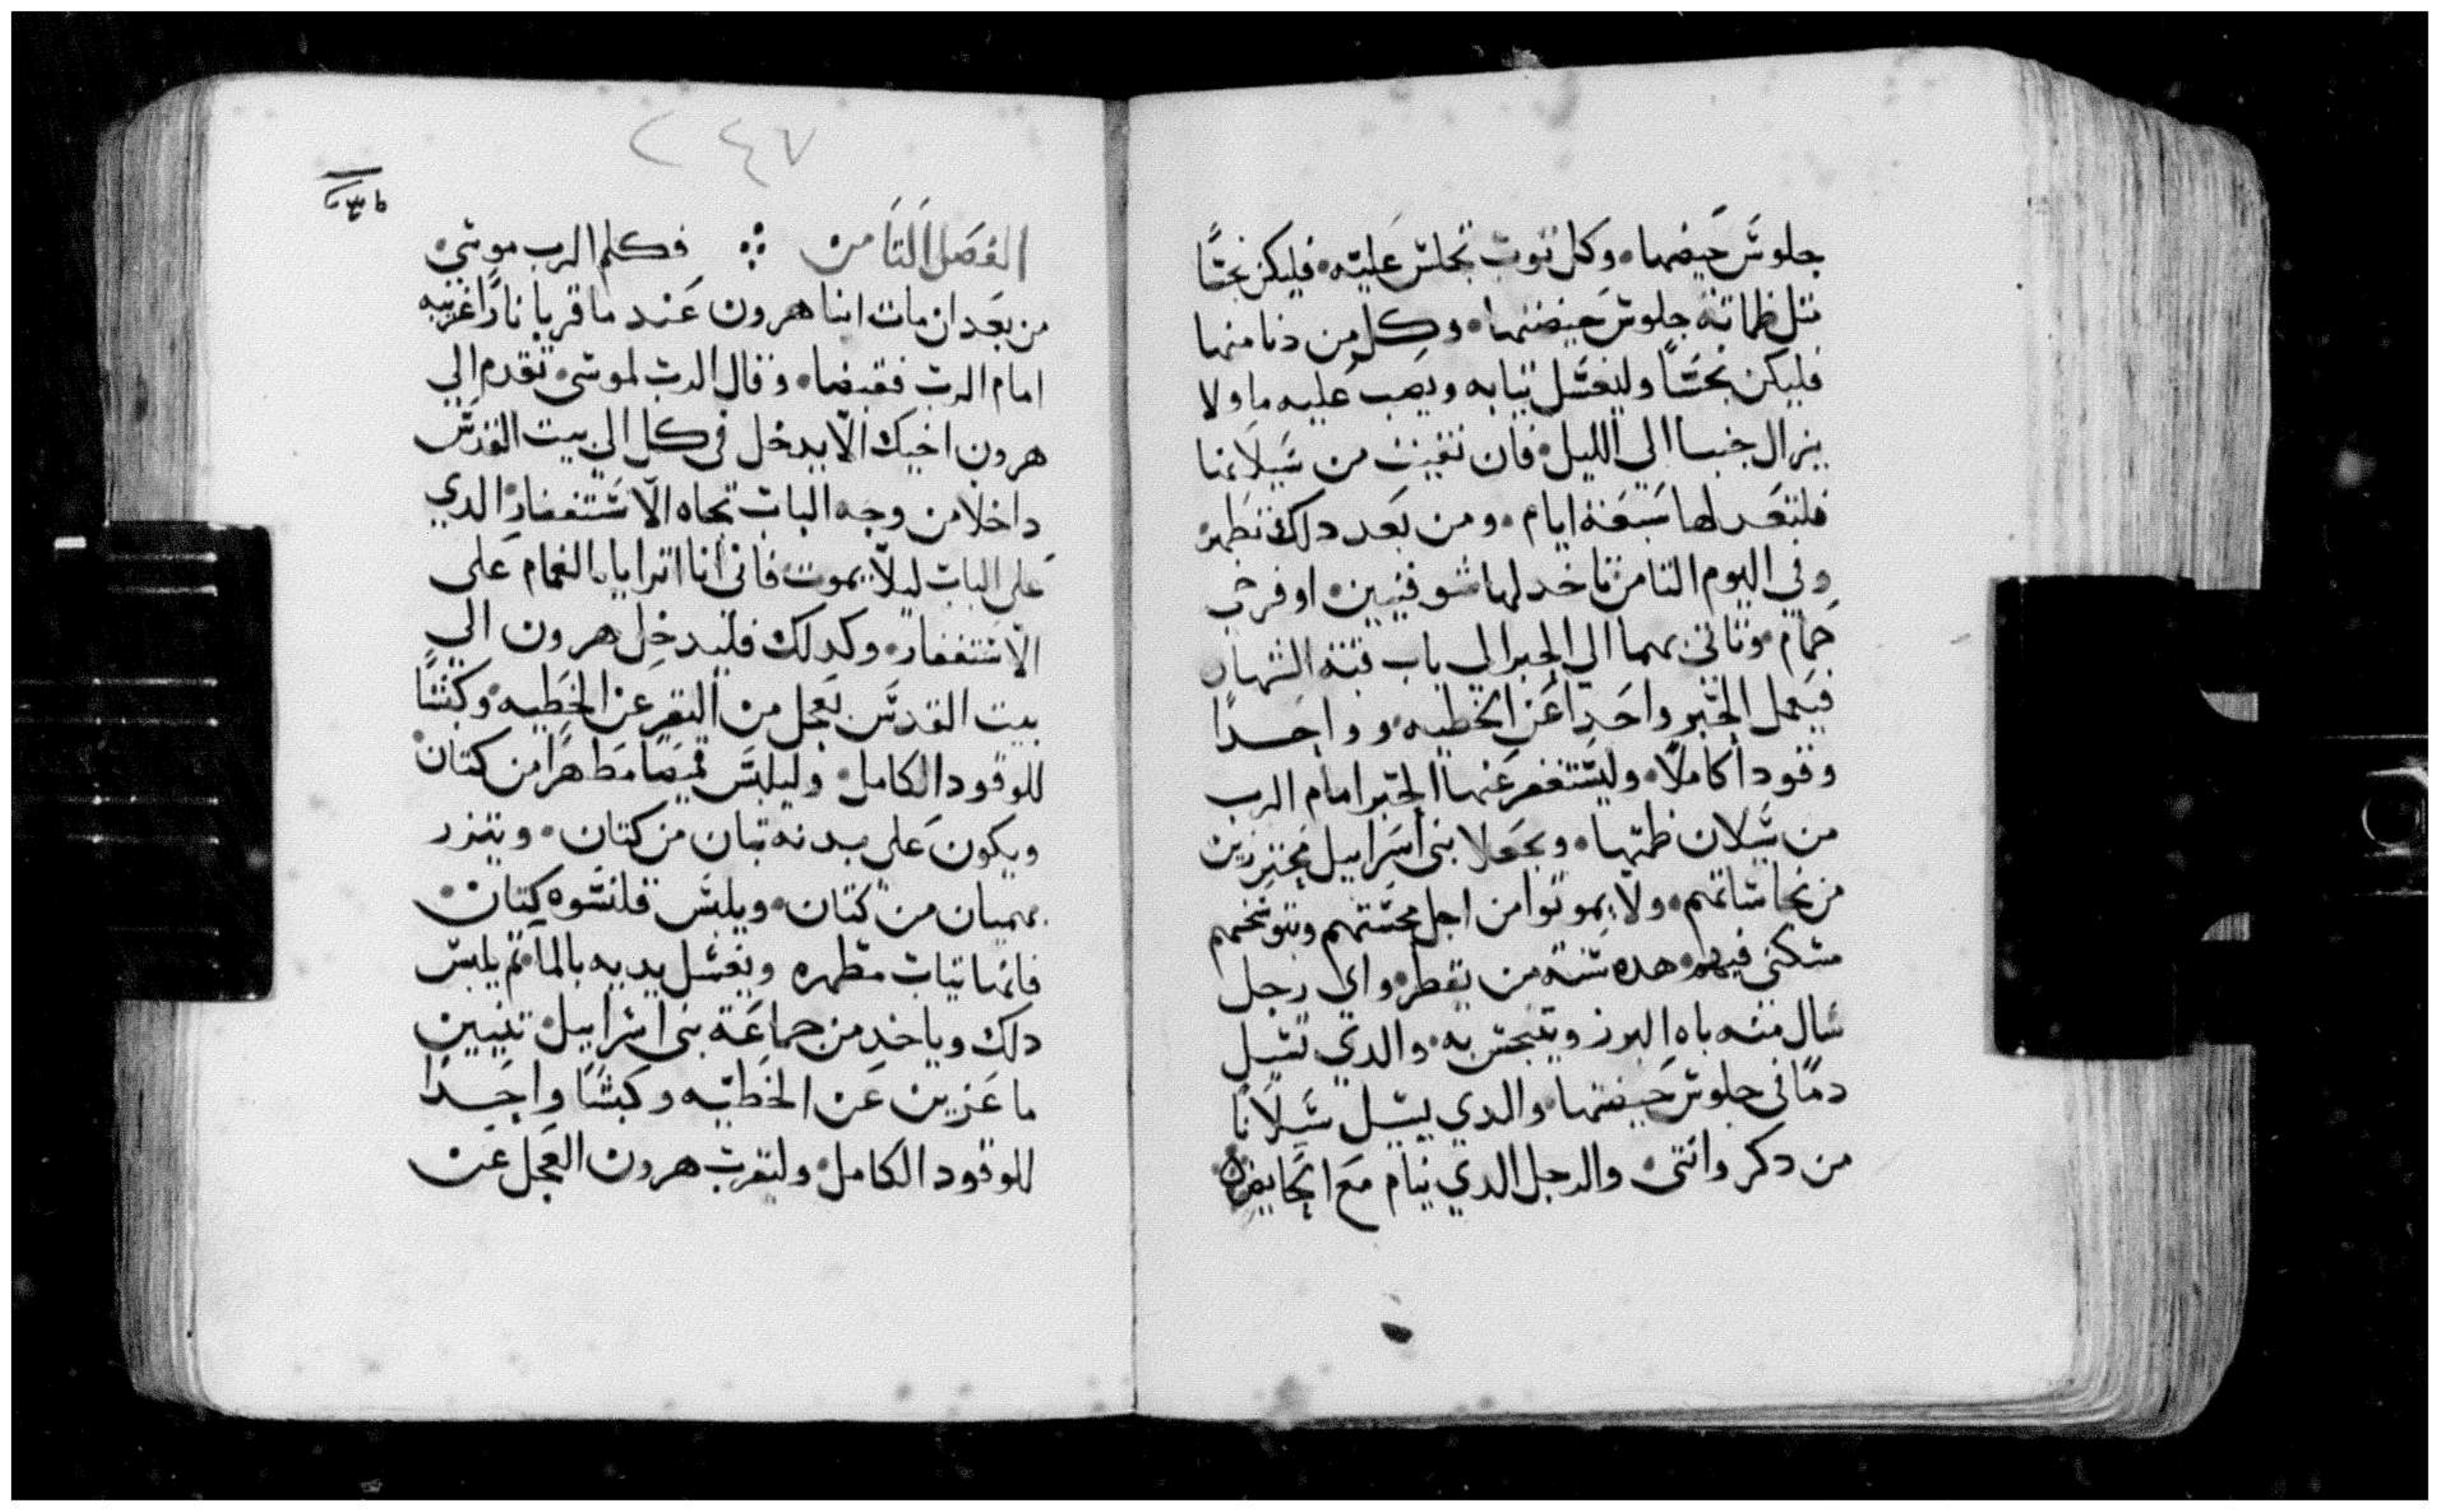 جلوس حيضها۰ وكل توب تجلس عليه۰ فليكن نجسًا
متل طماتة جلوس حيضتها۰ وكل من دنا منها
فليكن نجسًا وليغسل تيابه ويصب عليه ما ولا
يزال جنسا الي الليل۰ فان نقيت من سيلانها
فلتعد لها سبعة ايام۰ ومن بعد دلك تطهر
وفي اليوم التامن تاخد لها شوفنيين۰ او فرخي
حمام۰ وتاتي بهما الي الحبر الي باب قبة الشهاده
فيعمل الحبر واحدا عن الخطيه۰ وواحدًا
وقودا كاملًا۰ وليستغفر عنها الحبر امام الرب
من سيلان طمتها۰ ويجعلا بني اسراييل محترزين
من نجاساتهم۰ ولا يموتوا من اجل نجستهم وبتوسخهم
مسكني فيهم۰ هده سنة من يقطر۰ واي رجل
سال منه باه البرز ويتنجس به۰ والدي تسيل
دمًا في جلوس حيضتها۰ والدي يسيل سيلانًا
من دكر وانتى۰ والرجل الدي ينام مع الحايض
٢٤٧
الفصل التامن ፨ فكلم الرب موسي
من بعد ان مات ابنا هرون عند ما قربا نارًا غريبه
امام الرب فقبضا۰ وقال الرب لموسى۰ تقدم الي
هرون اخيك الّا يدخل في كل الي بيت القدس
داخلا من وجه الباب تجاه الاستغفار۰ الدي
على الباب ليلّا يموت۰ فاني أنا اترايا بالغمام على
الاستغفار۰ وكدلك فليدخل هرون الي
بيت القدس بعجل من البقر عن الخطيه۰ وكبشًا
للوقود الكامل۰ وليلبس قميصا مطهرًا من كتان۰
ويكون على بدنه تبان من كتان۰ ويتزر
بهميان من كتان۰ ويلبس قلنسوه كتان۰
فانها تياب مطهره ويغسل يديه بالما۰ تم يلبس
دلك وياخد من جماعة بني اسراييل۰ تنيين
ماعزين عن الخطيه وكبشًا واحدًا
للوقود الكامل۰ وليقرب هرون العجل عن